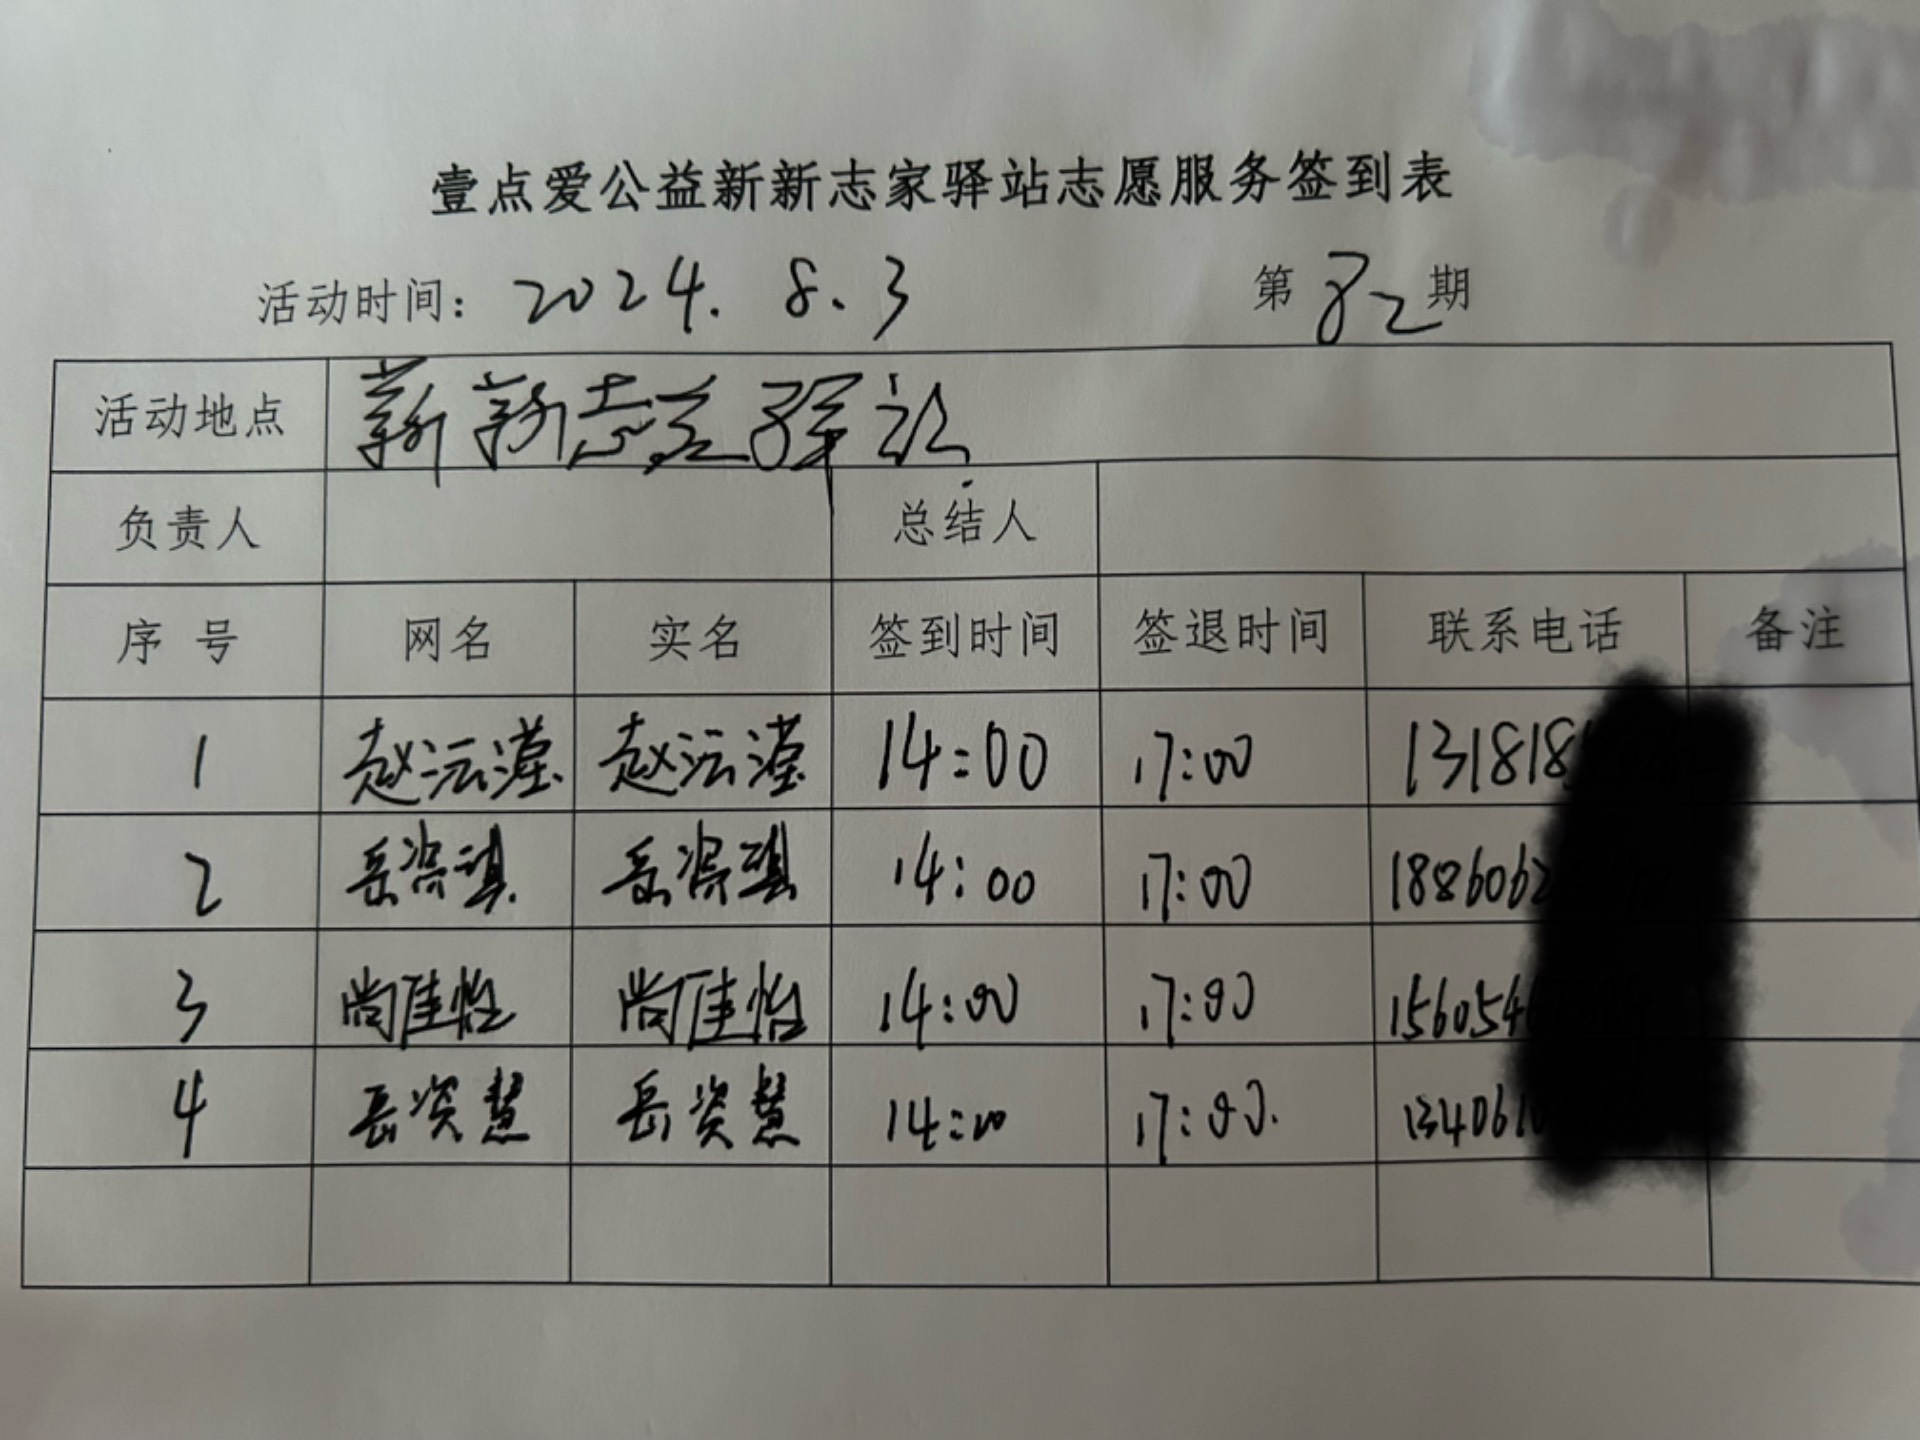 壹点爱公益新新志家驿站志愿服务签到表
活动时间：2024.8.3 第82期
活动地点 新新志家驿站
负责人 总结人
序号 网名 实名 签到时间 签退时间 联系电话 备注
1 赵沄滢 赵沄滢 14:00 17:00 131818
2 岳滨琪 岳滨琪 14:00 17:00 1886062
3 尚佳怡 尚佳怡 14:00 17:00 156054
4 岳资慧 岳资慧 14:00 17:00. 134061